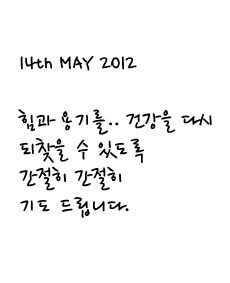 14th MAY 2012
힘과 용기를.. 건강을 다시
되찾을 수 있도록
간절히 간절히
기도 드립니다.